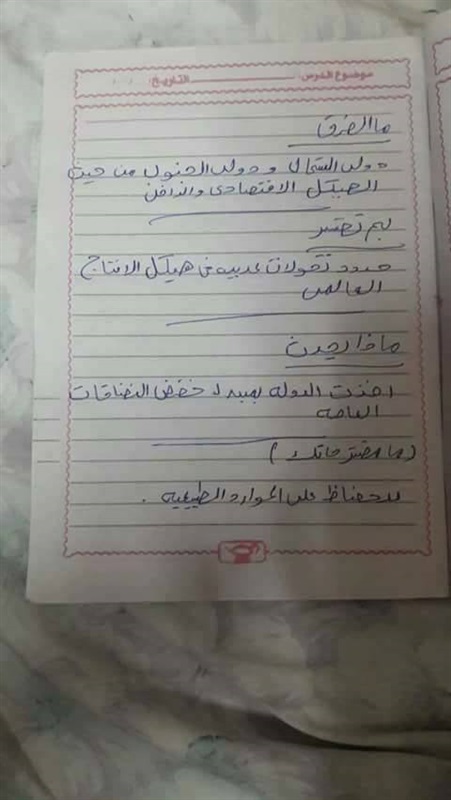 موضوع الدرس: التاريخ:
ما الفرق
دول الشمال ودول الجنوب من حيث
الهيكل الاقتصادى والداخلى
بم تفسر
حدوث تحولات عديده فى هيكل الانتاج
العالمى
ماذا يحدث
اخذت الدوله بمبدا خفض النفقات
العامه
(ما مقترحاتك)
للحفاظ على الموارد الطبيعيه .